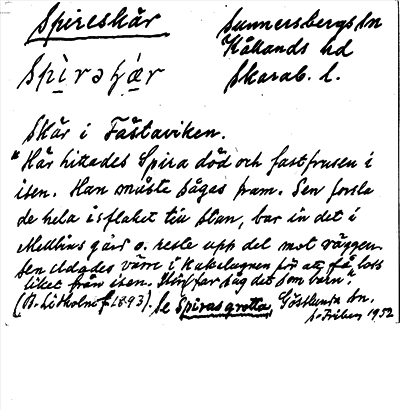 Spireskär
Sunnersbergs sn
Kållands hd
Skarab. l.
Skär i Fästaviken.
"Här hittades Spira död och fastfrusen i
isen. Han måste sågas fram. Sen forsla
de hela isflaket till stan, bar in det i
Medlins gård o. reste upp det mot väggen.
Sen eldades värre i kakelugnen för att få loss
liket från isen. Morfar såg det som barn".
(B. f. 1893). Se Spirasgrotta, Götlunda sn.
1952